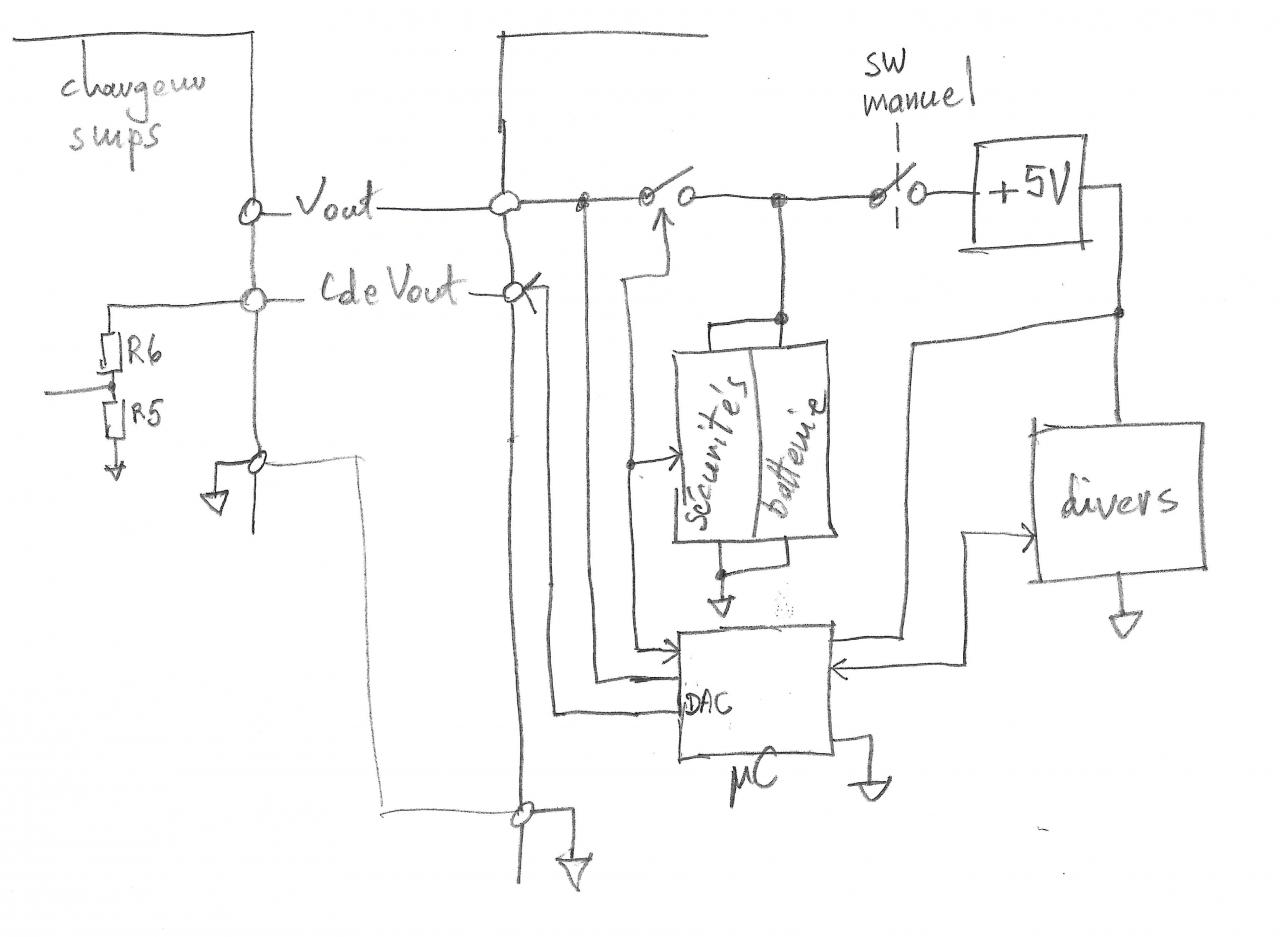 chargeur
smps
SW
manuel
Vout
+5V
Cde Vout
R6
R5
sécurités
batterie
divers
DAC
µC